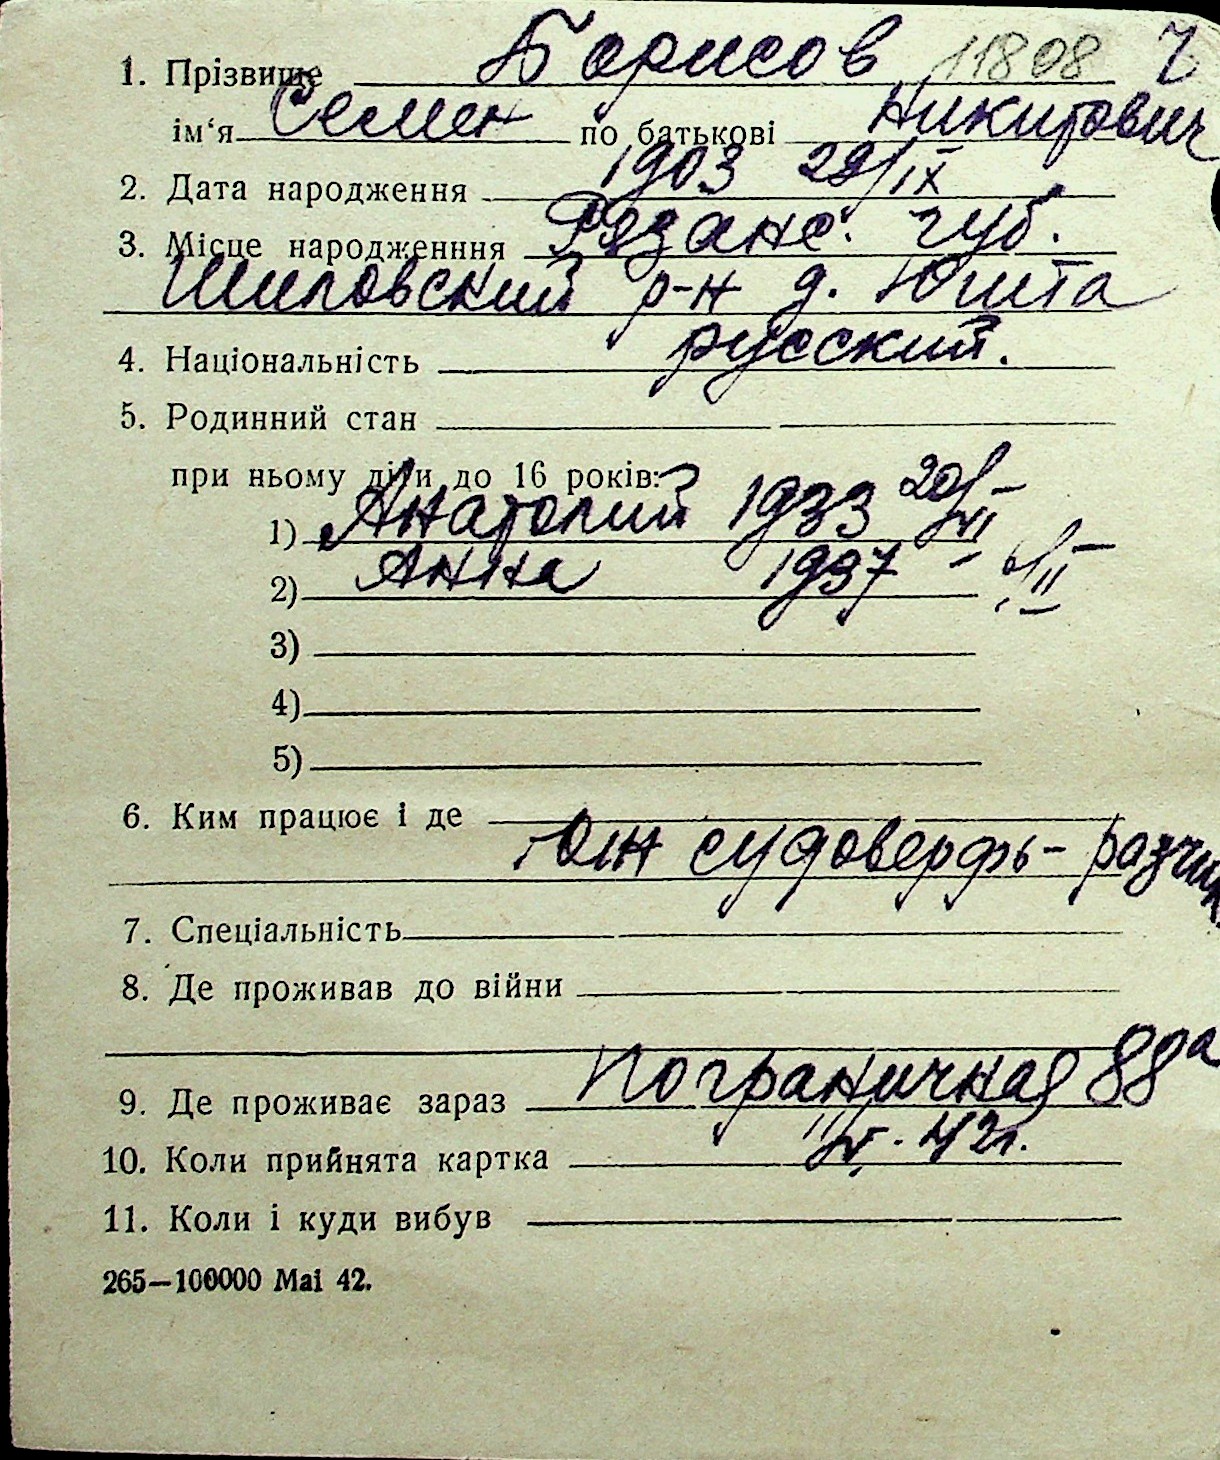 1. Прізвище Борисов 11808 Ч
ім‘я Семен по батькові Никитович
2. Дата народження 1903 29/IX
3. Місце народженння Рязанс. губ.
Шиловский р-н д. Юшта
4. Національність русский.
5. Родинний стан
при ньому діти до 16 років:
1) Анатолий 1933 20/VII
2) Анна 1937 /II
3)
4)
5)
6. Ким працює і де
Юж судоверфь-
7. Спеціальність
8. Де проживав до війни
9. Де проживає зараз Пограничная 88а
10. Коли прийнята картка 42г.
11. Коли і куди вибув
265—100000 Mai 42.